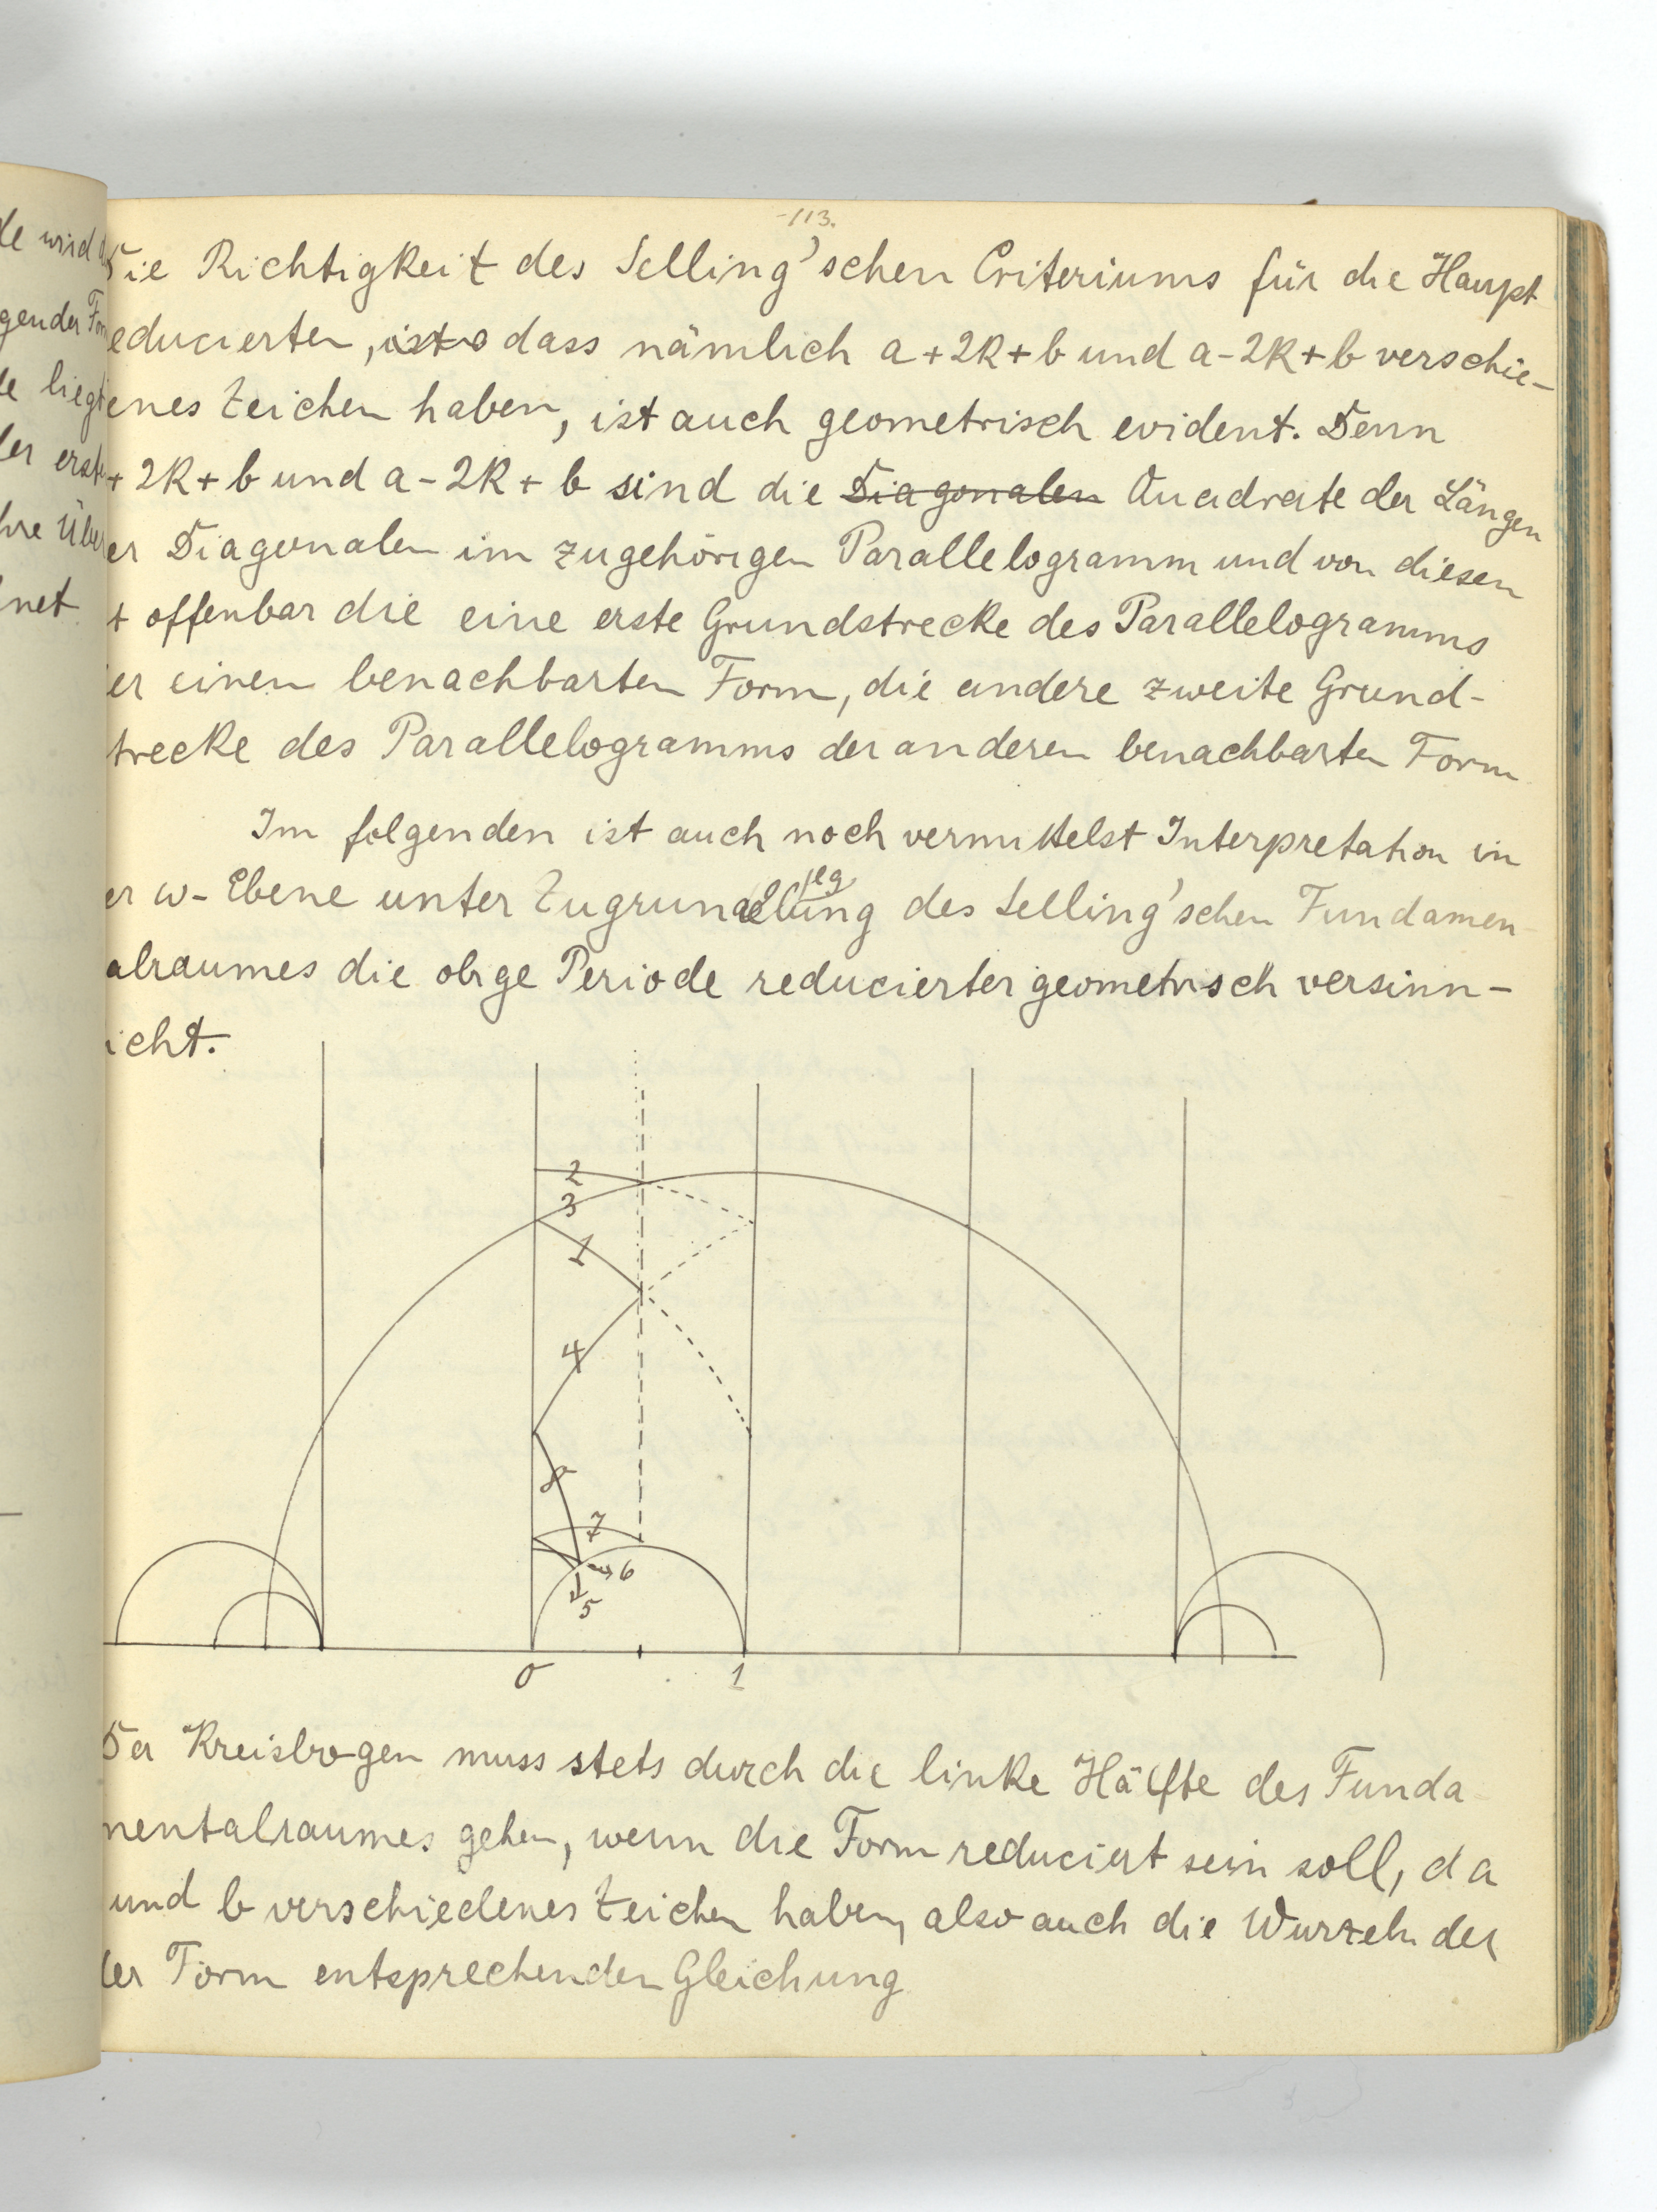 -113.
de wird d
gender For
de liegt
der erste
hre Über
net
Die Richtigkeit des Selling'schen Criteriums für die Haupt
educierten, ist dass nämlich a+2k+b und a-2k+b verschie-
enes Zeichen haben, ist auch geometrisch evident. Denn
+ 2k+b und a-2k+b sind die Diagonalen Quadrate der Längen
er Diagonalen im zugehörigen Parallelogramm und von diesen
t offenbar die eine erste Grundstrecke des Parallelogramms
er einen benachbarten Form, die andere zweite Grund-
trecke des Parallelogramms der anderen benachbarten Form
Im folgenden ist auch noch vermittelst Interpretation in
er w-Ebene unter Zugrundelegung des Selling'schen Fundamen-
alraumes die obige Periode reducierter geometrisch versinn-
icht.
2
3
1
4
8
7
6
5
0 1
Der Kreisbogen muss stets durch die linke Hälfte des Funda-
mentalraumes gehen, wenn die Form reduciert sein soll, da
und b verschiedenes Zeichen haben, also auch die Wurzeln der
der Form entsprechenden Gleichung